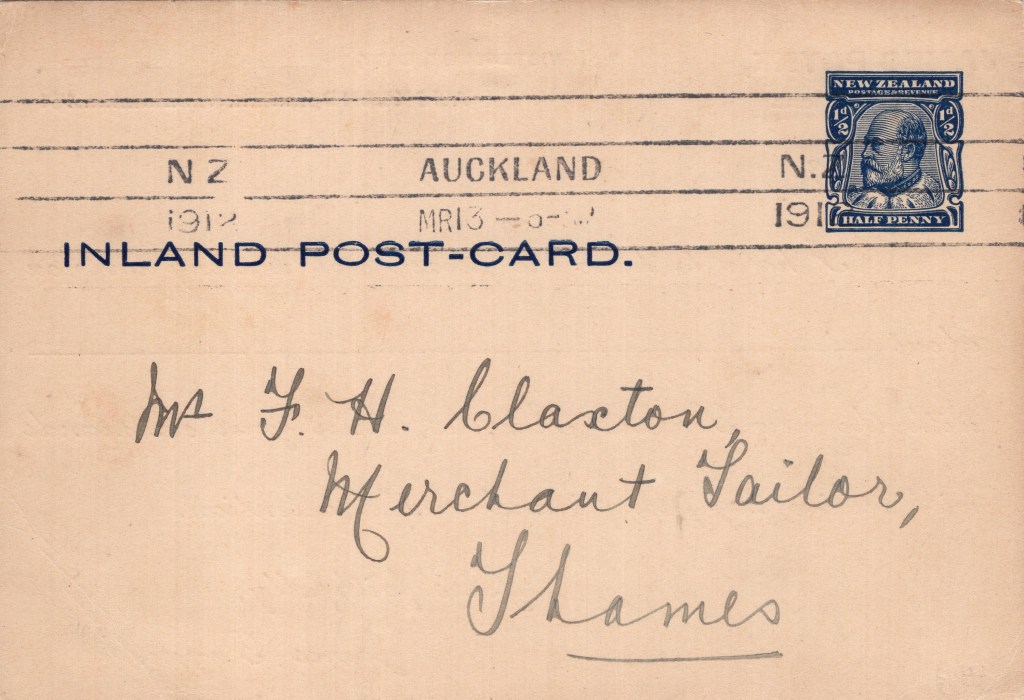 NEW ZEALAND
POSTAGE & REVENUE
½d ½d
HALF PENNY
N Z AUCKLAND N.Z
1912 MR 13 191
INLAND POST-CARD.
Mr F. H. Claxton,
Merchant Tailor,
Thames